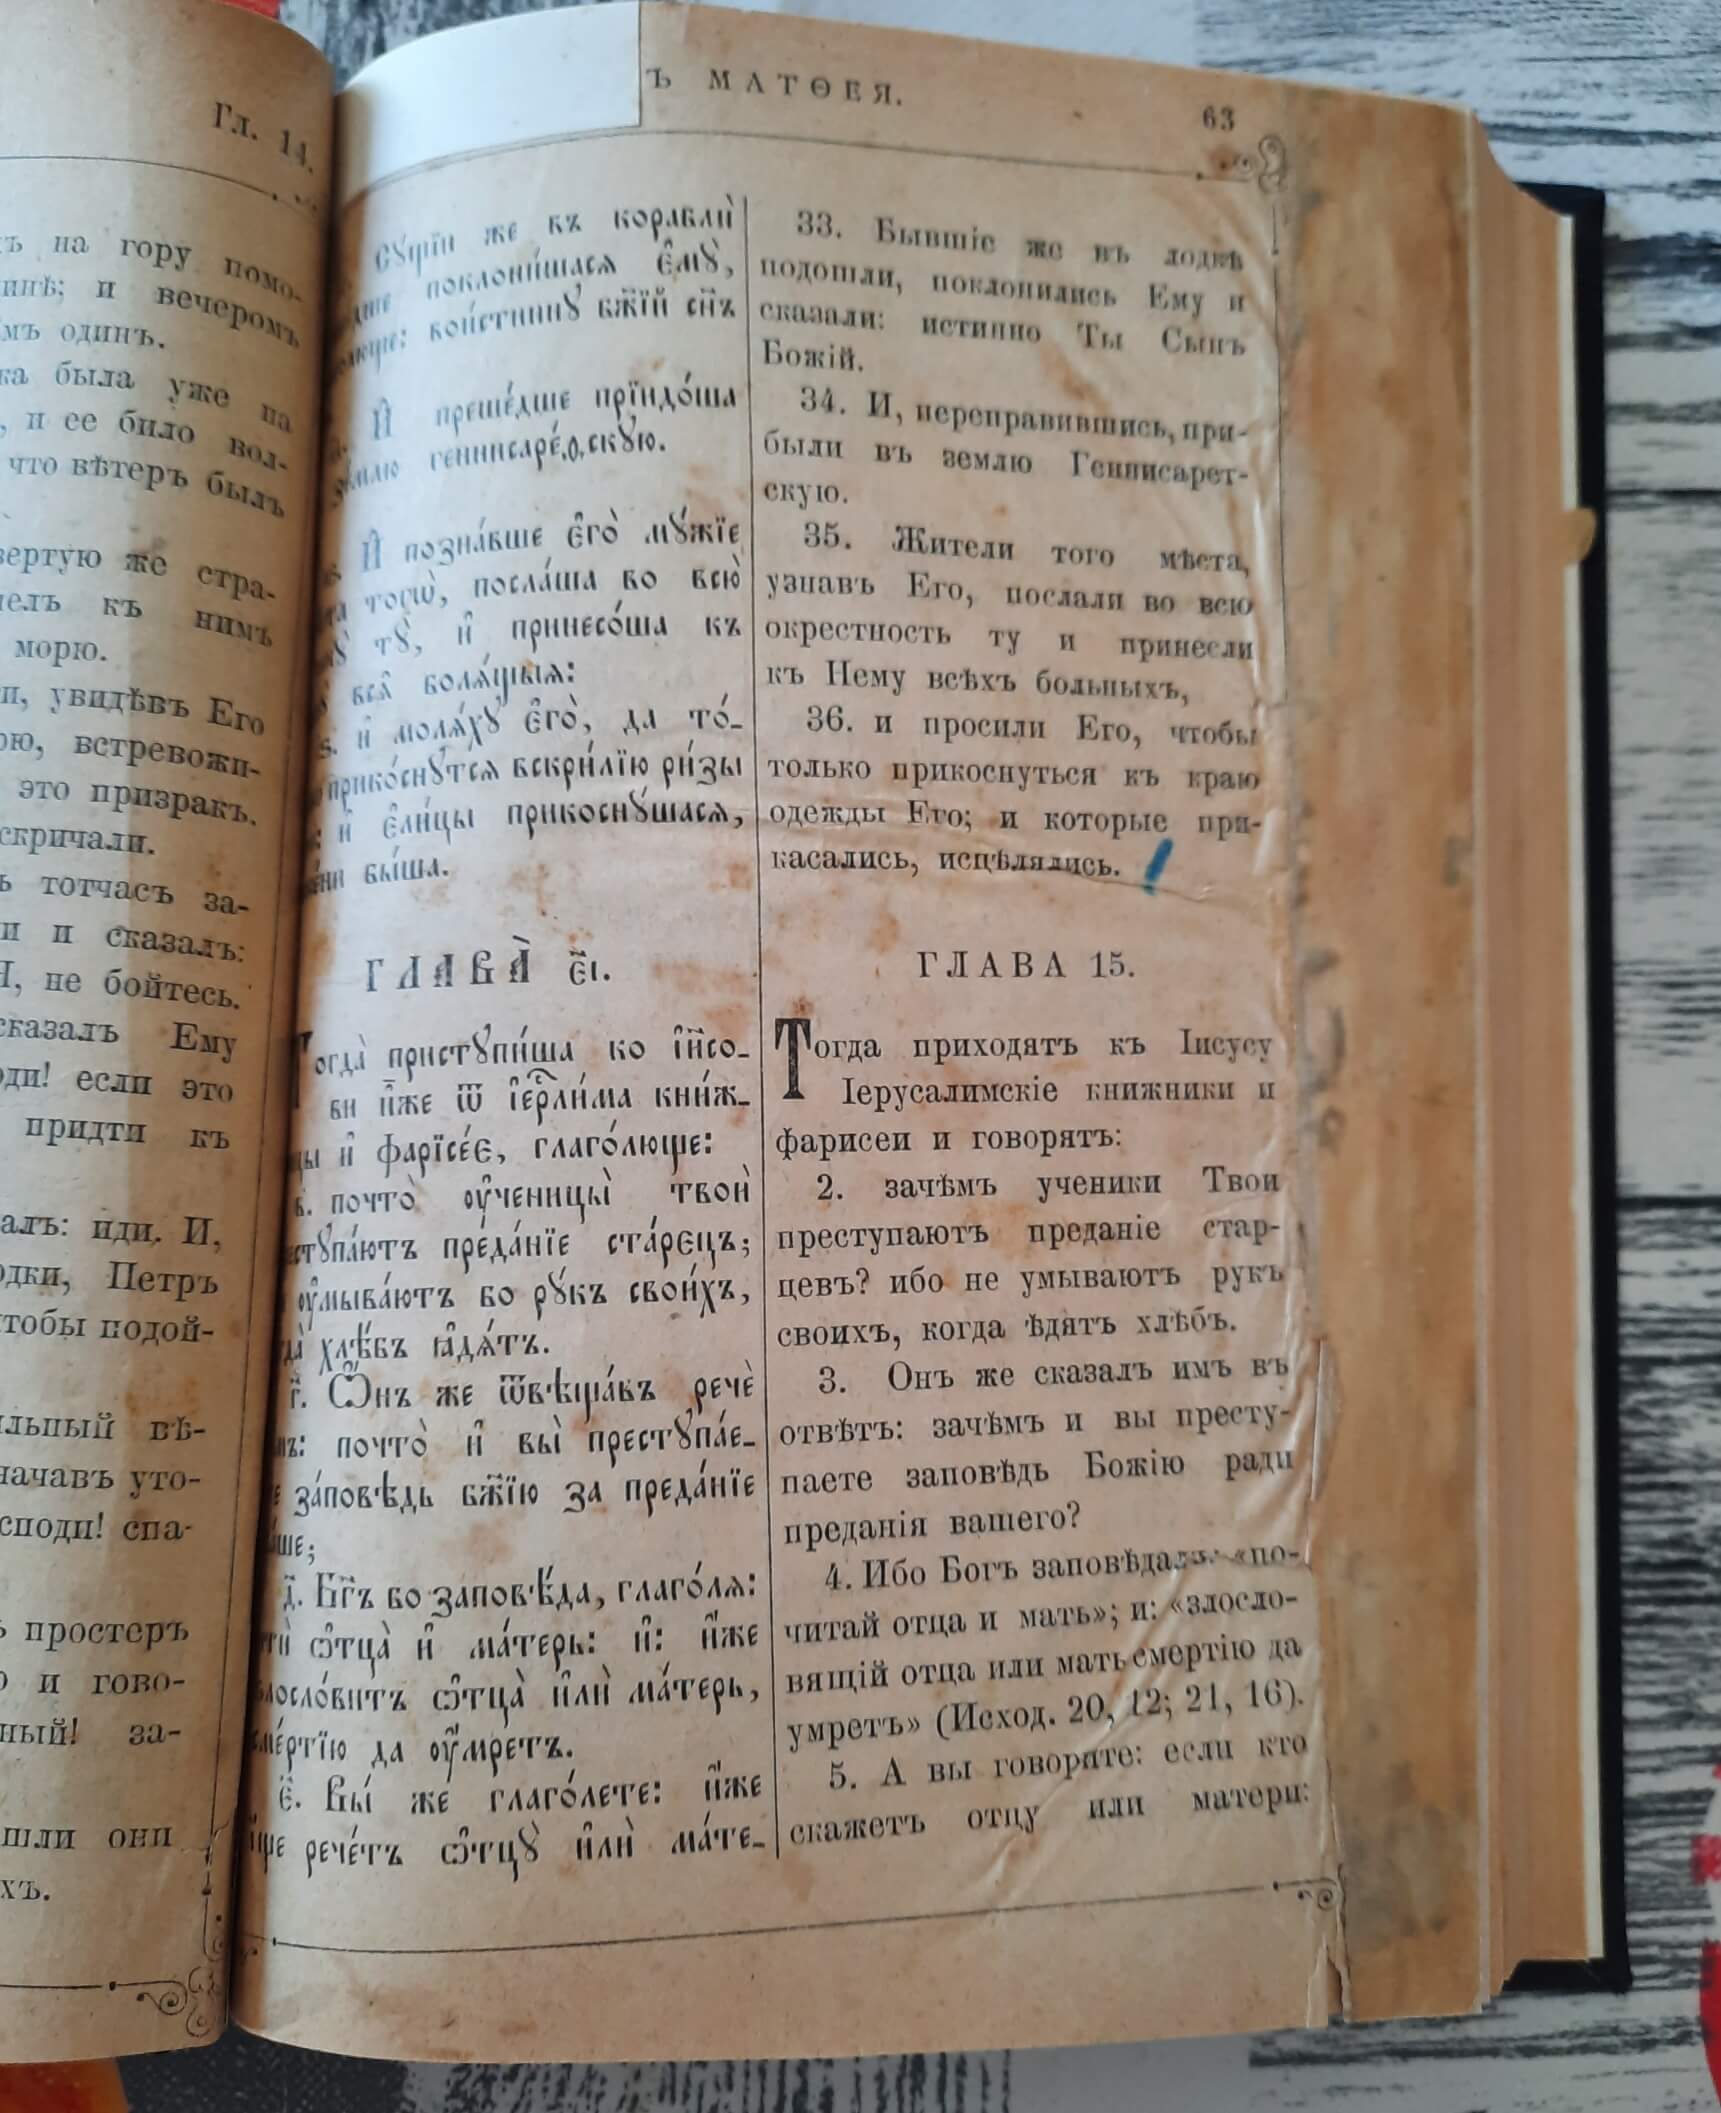 Гл. 14.
на гору помо-
и вечеромъ
одинъ.
была уже на
и ее било вол-
что вѣтеръ былъ
же стра-
къ нимъ
морю.
увидѣвъ Его
встревожи-
это призракъ.
вскричали.
тотчасъ за-
и сказалъ:
не бойтесь.
сказалъ Ему
если это
придти къ
иди. И,
Петръ
чтобы подой-
вѣ-
начавъ уто-
спа-
простеръ
и гово-
за-
они
Ъ МАТѲЕЯ.
63
сꙋ́щїи же въ кораблѝ
поклони́шасѧ є҆мꙋ̀,
вои́стиннꙋ бж҃їй сн҃ъ
И҆ преше́дше прїидо́ша
генниса́ре́ѳскꙋю.
И҆ позна́вше є҆го̀ мꙋ́жїе
тогѡ̀, посла́ша во всю̀
тꙋ̀, и҆ принесо́ша къ
всѧ̑ болѧ́щыѧ:
и҆ молѧ́хꙋ є҆го̀, да то́-
прико́снꙋтсѧ вскри́лїю ри́зы
и҆ є҆ли́цы прикоснꙋ́шасѧ,
бы́ша.
ГЛАВА̀ є҃і.
Тогда̀ пристꙋпи́ша ко і҆и҃со-
ви и҆̀же ѿ і҆ерⷭ҇ли́ма кни́ж-
и҆ фарїсе́є, глаго́люще:
в҃. почто̀ ᲂу҆ченицы̀ твоѝ
преда́нїе ста́рєцъ;
ᲂу҆мыва́ютъ бо рꙋ́къ свои́хъ,
хлѣ́бъ ꙗ҆дѧ́тъ.
г҃. Ѻ҆́нъ же ѿвѣща́въ речѐ
почто̀ и҆ вы̀ престꙋпа́е-
за́повѣдь бж҃їю за преда́нїе
д҃. Бг҃ъ бо заповѣ́да, глаго́лѧ:
ѻ҆тца̀ и҆ ма́терь: и҆: и҆́же
злосло́витъ ѻ҆тца̀ и҆лѝ ма́терь,
сме́ртїю да ᲂу҆́мретъ.
є҃. Вы́ же глаго́лете: и҆́же
рече́тъ ѻ҆тцꙋ̀ и҆лѝ ма́те-
33. Бывшіе же въ лодкѣ
подошли, поклонились Ему и
сказали: истинно Ты Сынъ
Божій.
34. И, переправившись, при-
были въ землю Геннисарет-
скую.
35. Жители того мѣста,
узнавъ Его, послали во всю
окрестность ту и принесли
къ Нему всѣхъ больныхъ,
36. и просили Его, чтобы
только прикоснуться къ краю
одежды Его; и которые при-
касались, исцѣлялись.
ГЛАВА 15.
Тогда приходятъ къ Іисусу
Іерусалимскіе книжники и
фарисеи и говорятъ:
2. зачѣмъ ученики Твои
преступаютъ преданіе стар-
цевъ? ибо не умываютъ рукъ
своихъ, когда ѣдятъ хлѣбъ.
3. Онъ же сказалъ имъ въ
отвѣтъ: зачѣмъ и вы престу-
паете заповѣдь Божію ради
преданія вашего?
4. Ибо Богъ заповѣдалъ: «по-
читай отца и мать»; и: «злосло-
вящій отца или мать смертію да
умретъ» (Исход. 20, 12; 21, 16).
5. А вы говорите: если кто
скажетъ отцу или матери: